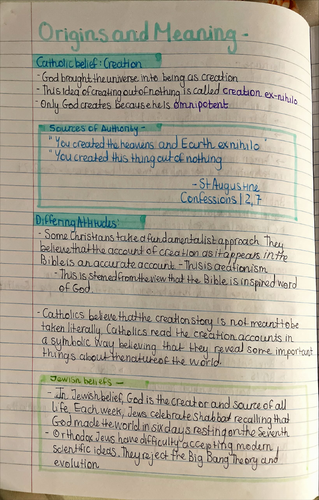 Origins and Meaning -
Catholic belief: Creation
- God brought the universe into being as creation
- This idea of creating out of nothing is called creation ex-nihilo
- Only God creates because he is omnipotent
Sources of Authority -
"You created the heavens and Earth exnihilo"
"You created this thing out of nothing
- St Augustine
Confessions 12,7
Differing Attitudes:
- Some Christians take a fundamentalist approach. They
believe that the account of creation as it appears in the
Bible is an accurate account - This is creationism
- This is stemed from the view that the Bible is inspired word
of God.
- Catholics believe that the creation story is not meant to be
taken literally. Catholics read the creation accounts in
a symbolic way believing that they reveal some important
things about the nature of the world.
Jewish beliefs -
- In Jewish belief, God is the creator and source of all
life. Each week, Jews celebrate shabbat recalling that
God made the world in six days resting on the seventh
- Orthodox Jews have difficulty accepting modern
scientific ideas. They reject the Big Bang Theory and
evolution.